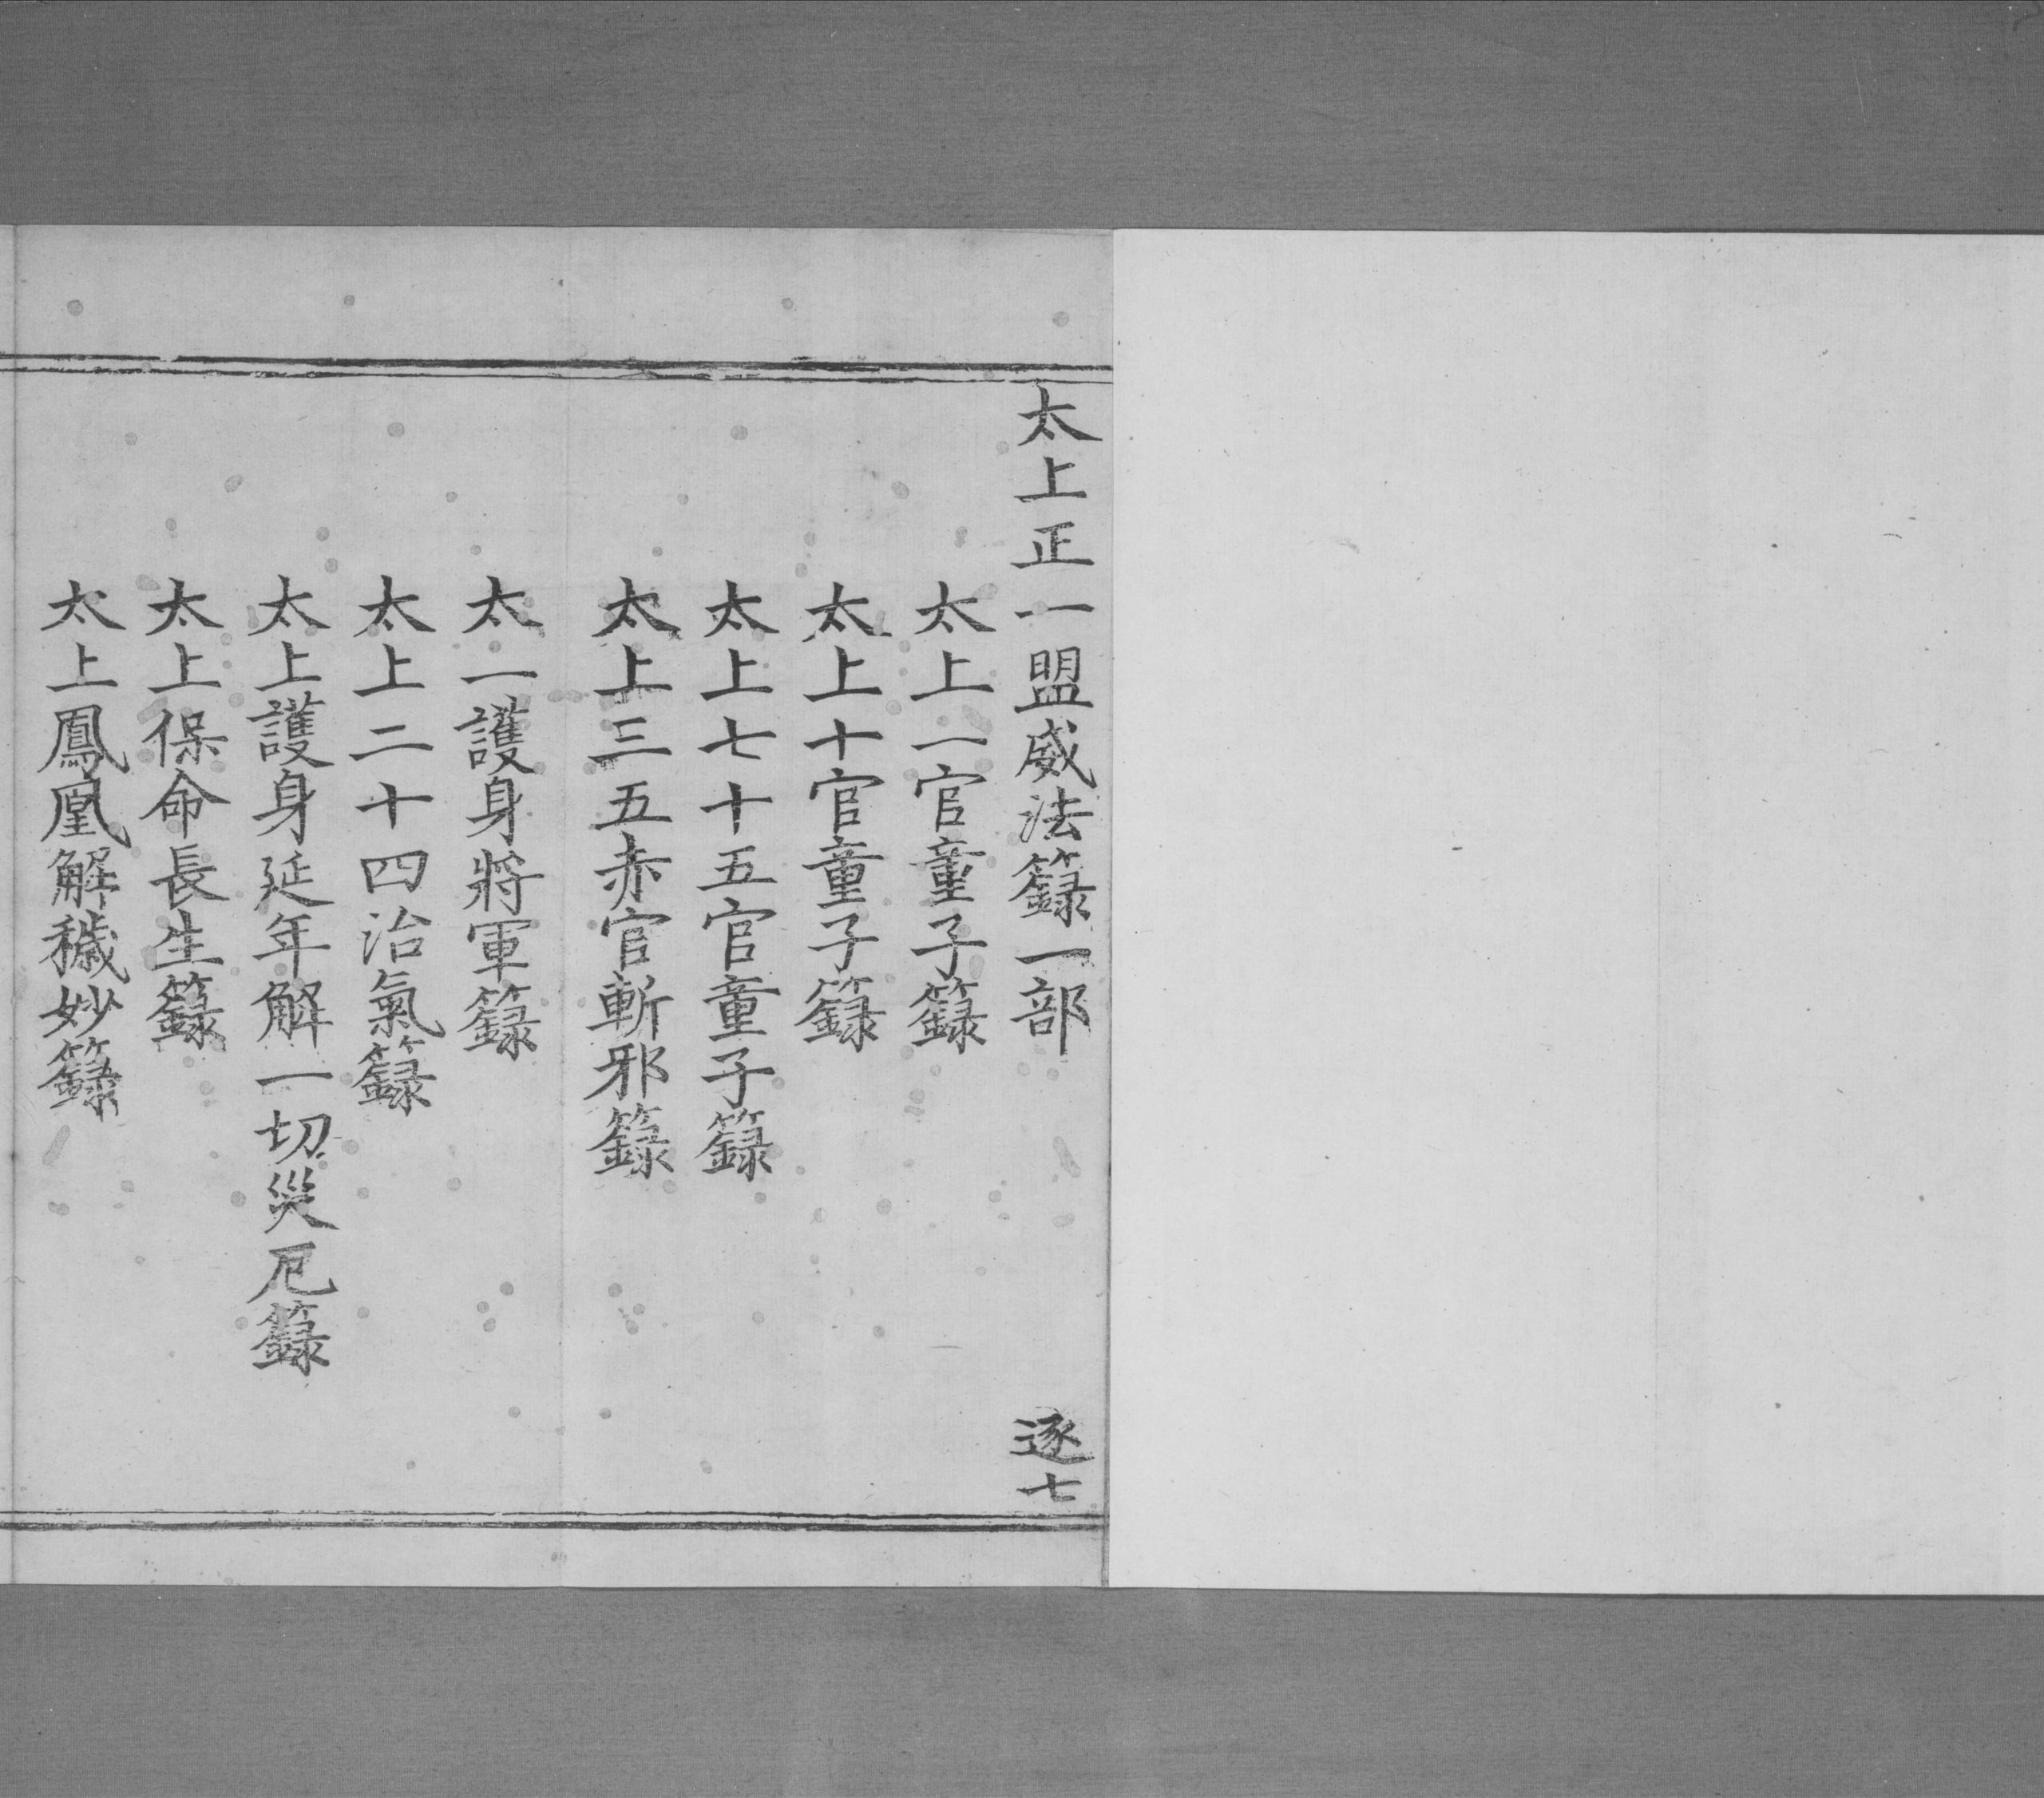 太上正一盟威法籙一部 逐七
太上一官童子籙
太上十官童子籙
太上七十五官童子籙
太上三五赤官斬邪籙
太一護身將軍籙
太上二十四治氣籙
太上護身延年解一切災厄籙
太上保命長生籙
太上鳳凰解穢妙籙